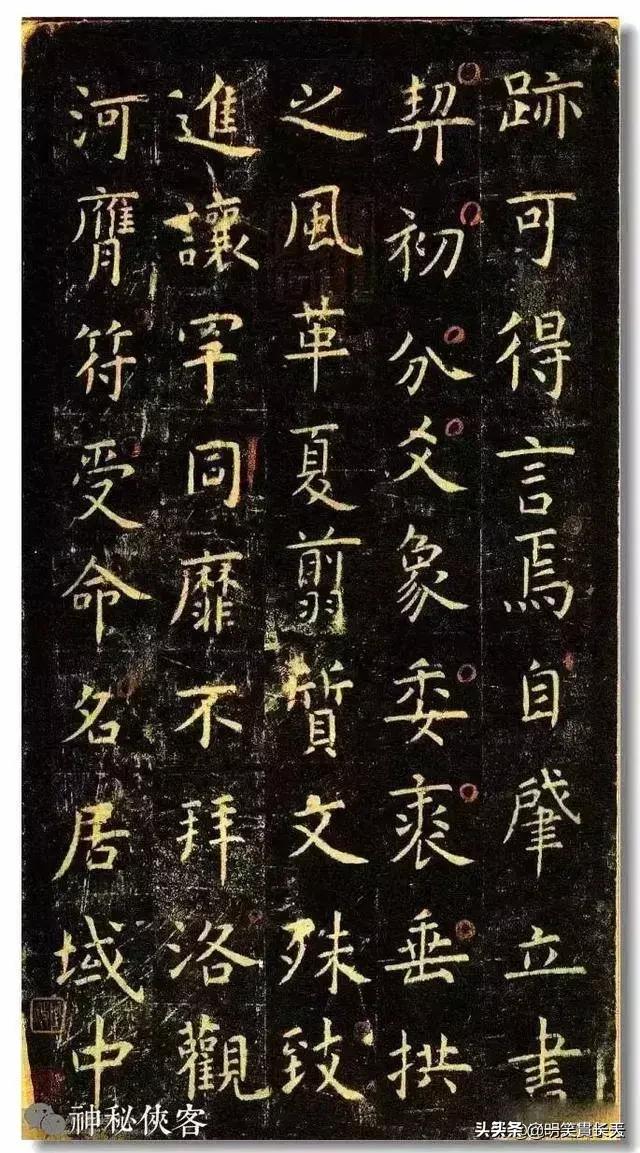 跡可得言焉自肇立書
契初分爻象委裘垂拱
之風革夏翦質文殊致
進讓罕同靡不拜洛觀
河膺符受命名居域中
神秘俠客
头条